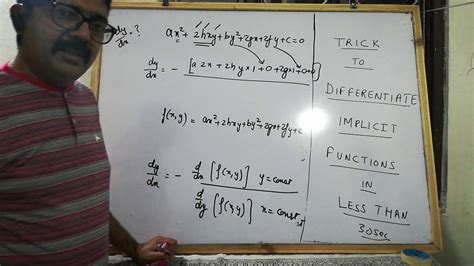 dy/dx = ?
ax² + 2hxy + by² + 2gx + 2fy + c = 0
dy/dx = - [a 2x + 2hy × 1 + 0 + 2g × 1 + 0 + 0]
f(x,y) = ax² + 2hxy + by² + 2gx + 2fy + c
dy/dx = - d/dx [f(x,y)] y = const
d/dy [f(x,y)] x = const
TRICK
TO
DIFFERENTIATE
IMPLICIT
FUNCTIONS
IN
LESS THAN
30sec